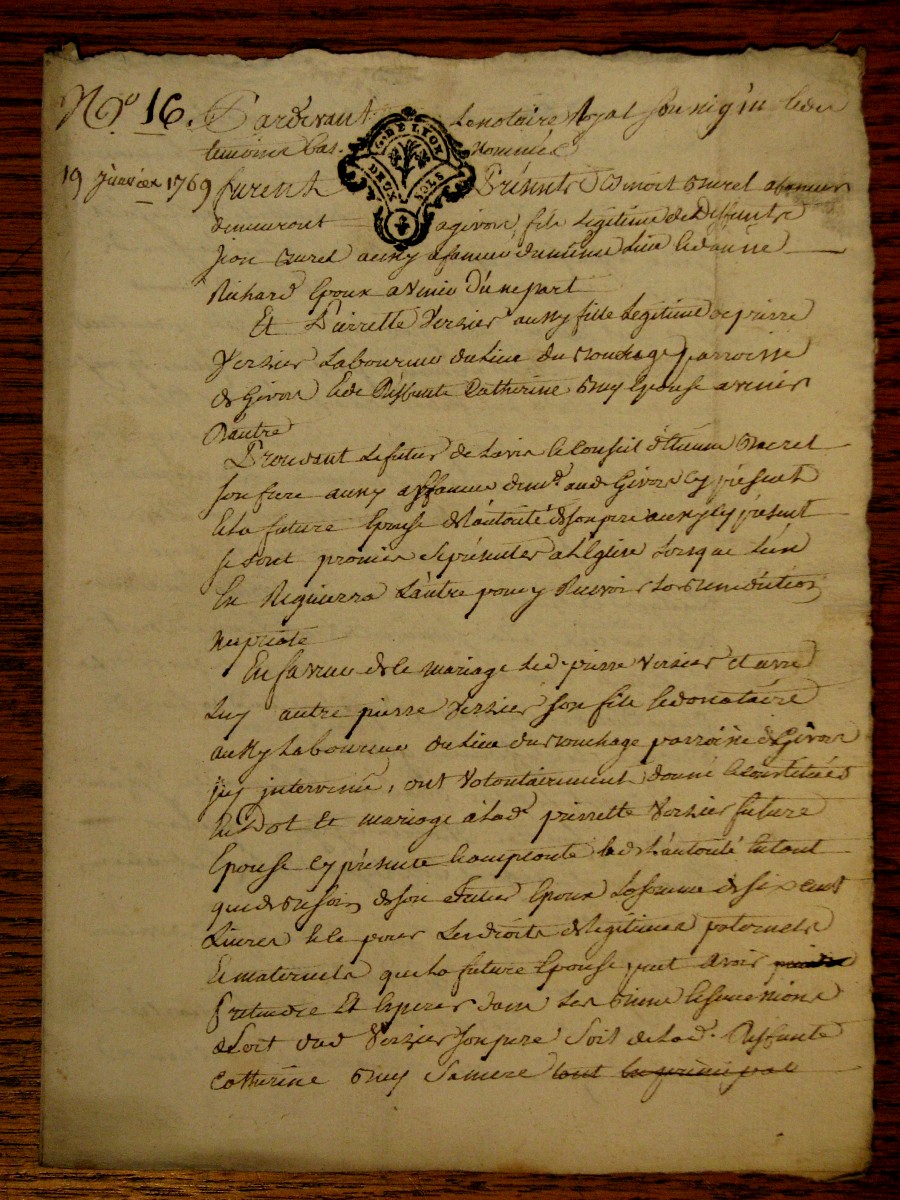 No. 16. Pardevant Le notaire Royal Soussigné et les
temoins bas nommés
G. DE LYON
DEUX SOLS
19 janvier 1769 furent Présents Benoit
demeurant a givors, fils Légitime de deffunts
jean aussy affaneur dudit Lieu et de anne
Richard Epoux avenir d'une part
Et Pierrette Verzier aussy fille Legitime de pierre
Verzier Laboureur du Lieu du parroisse
de Givors et de deffunte Catherine Epouse avenir
d'autre
Procedant Le futur de L'avis et Conseil d'Etienne
son frere aussy affaneur demt. aud. Givors cy présent
et La future Epouse de L'autorité de Son pere aussy cy présent
se sont promis se présenter a L'Eglise Lorsque L'un
En Requierra L'autre pour y Recevoir La Benediction
nuptiale
En faveur de ce mariage Led. pierre Verzier et avec
Luy autre pierre Verzier Son fils et donataire
aussy Laboureur du Lieu du parroisse de Givors
icy intervenu, ont Volontairement donné et constitué
En Dot Et mariage à Lad. pierrette Verzier future
Epouse cy présente de L'autorité En tant
que de besoin de son futur Epoux La somme de six cent
Livres et ce pour Les droits de Légitimes paternels
et maternels que La future Epouse peut avoir
Prétendre Et Esperer dans Les biens et successions
de Soit dud. Verzier Son pere Soit de Lad. deffunte
Catherine Sa mere tout en principal